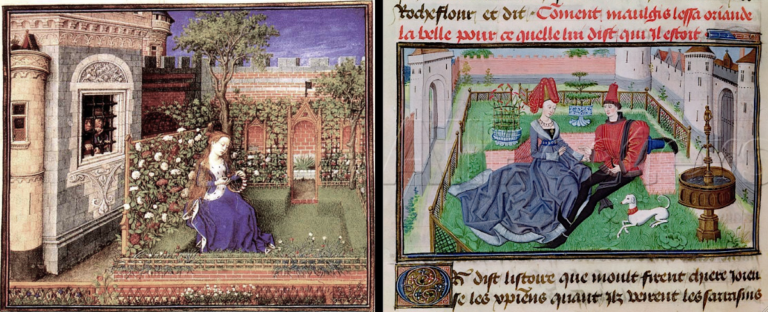 Rochefflour et dit Coment maulgis lessa oriande
la belle pour ce quelle lui dist qui il estoit
Or dist listoire que moult firent chiere ioieu
se les xpiens quant ilz virent les sarrasins